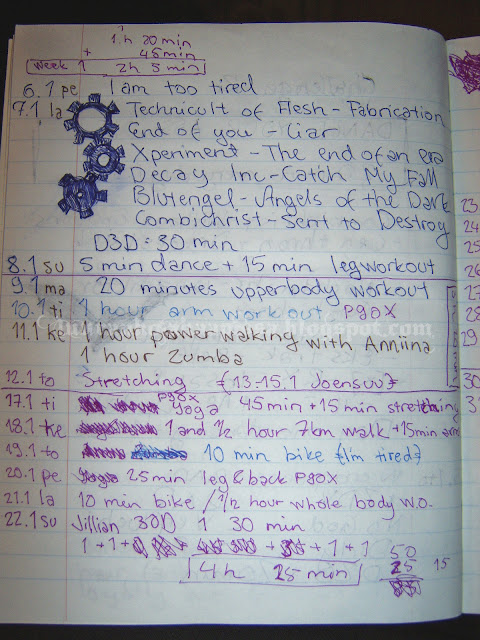 1 h 20 min
+ 45 min
Week 1 2h 5 min
6.1 pe I am too tired
7.1 la Technicult of Flesh - Fabrication
End of you - Liar
Xperiment - The end of an era
Decay Inc - Catch My Fall
Blutengel - Angels of the Dark
Combichrist - Sent to Destroy
D3D = 30 min
8.1 su 5 min dance + 15 min leg workout
9.1 ma 20 minutes upperbody workout
10.1 ti 1 hour arm workout P90X
11.1 ke 1 hour power walking with Anniina
1 hour Zumba
12.1 to Stretching {13.-15.1 Joensuu}
17.1 ti P90X yoga 45 min + 15 min stretching
18.1 ke 1 and 1/2 hour 7km walk + 15 min arm
19.1 to 10 min bike {I'm tired}
20.1 pe 25 min leg & back P90X
21.1 la 10 min bike / 1/2 hour whole body w.o.
22.1 su Jillian 30D 1 30 min
1 + 1 + + + + 1 + 1 50
25 15
4 h 25 min
23.
24
25
26
27
28
29
30
3